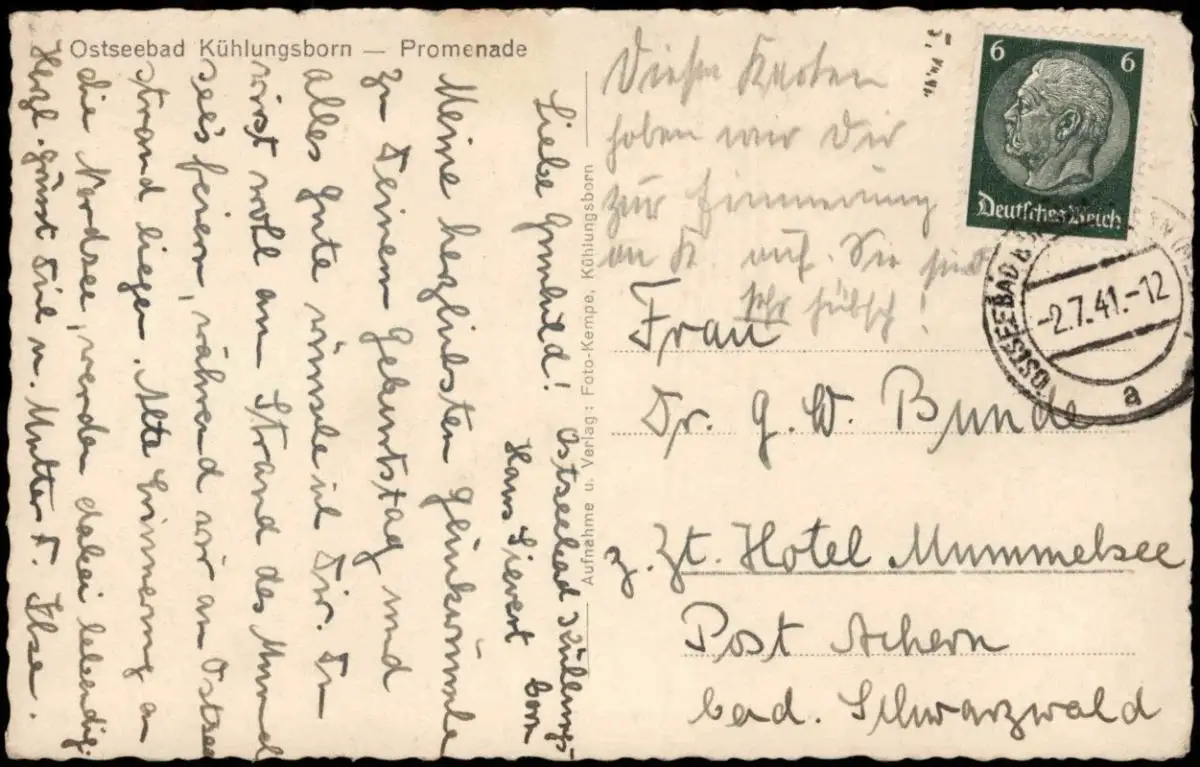 Ostseebad Kühlungsborn — Promenade
Liebe Gunhild! Ostseebad Kühlungs-
born
Haus Sievert
Meine herzlichsten Glückwünsche
zu Deinem Geburtstag und
alles Gute wünsche ich Dir. Du
wirst wohl am Strand des Mummel
see's feiern, während wir am Ostsee
strand liegen. Alte Erinnerung an
die Nordsee, werden dabei lebendig.
Herzl. grüsst Dich u. Mutter D. Ilse.
Aufnahme u. Verlag: Foto-Kempe, Kühlungsborn
Diese Karten
haben wir Dir
zur Erinnerung
an K. auf. Sie sind
sehr hübsch!
6 6
Deutsches Reich
OSTSEEBAD
-2.7.41.-12
a
Frau
Dr. G. W. Bunde
z. Zt. Hotel Mummelsee
Post Achern
bad. Schwarzwald